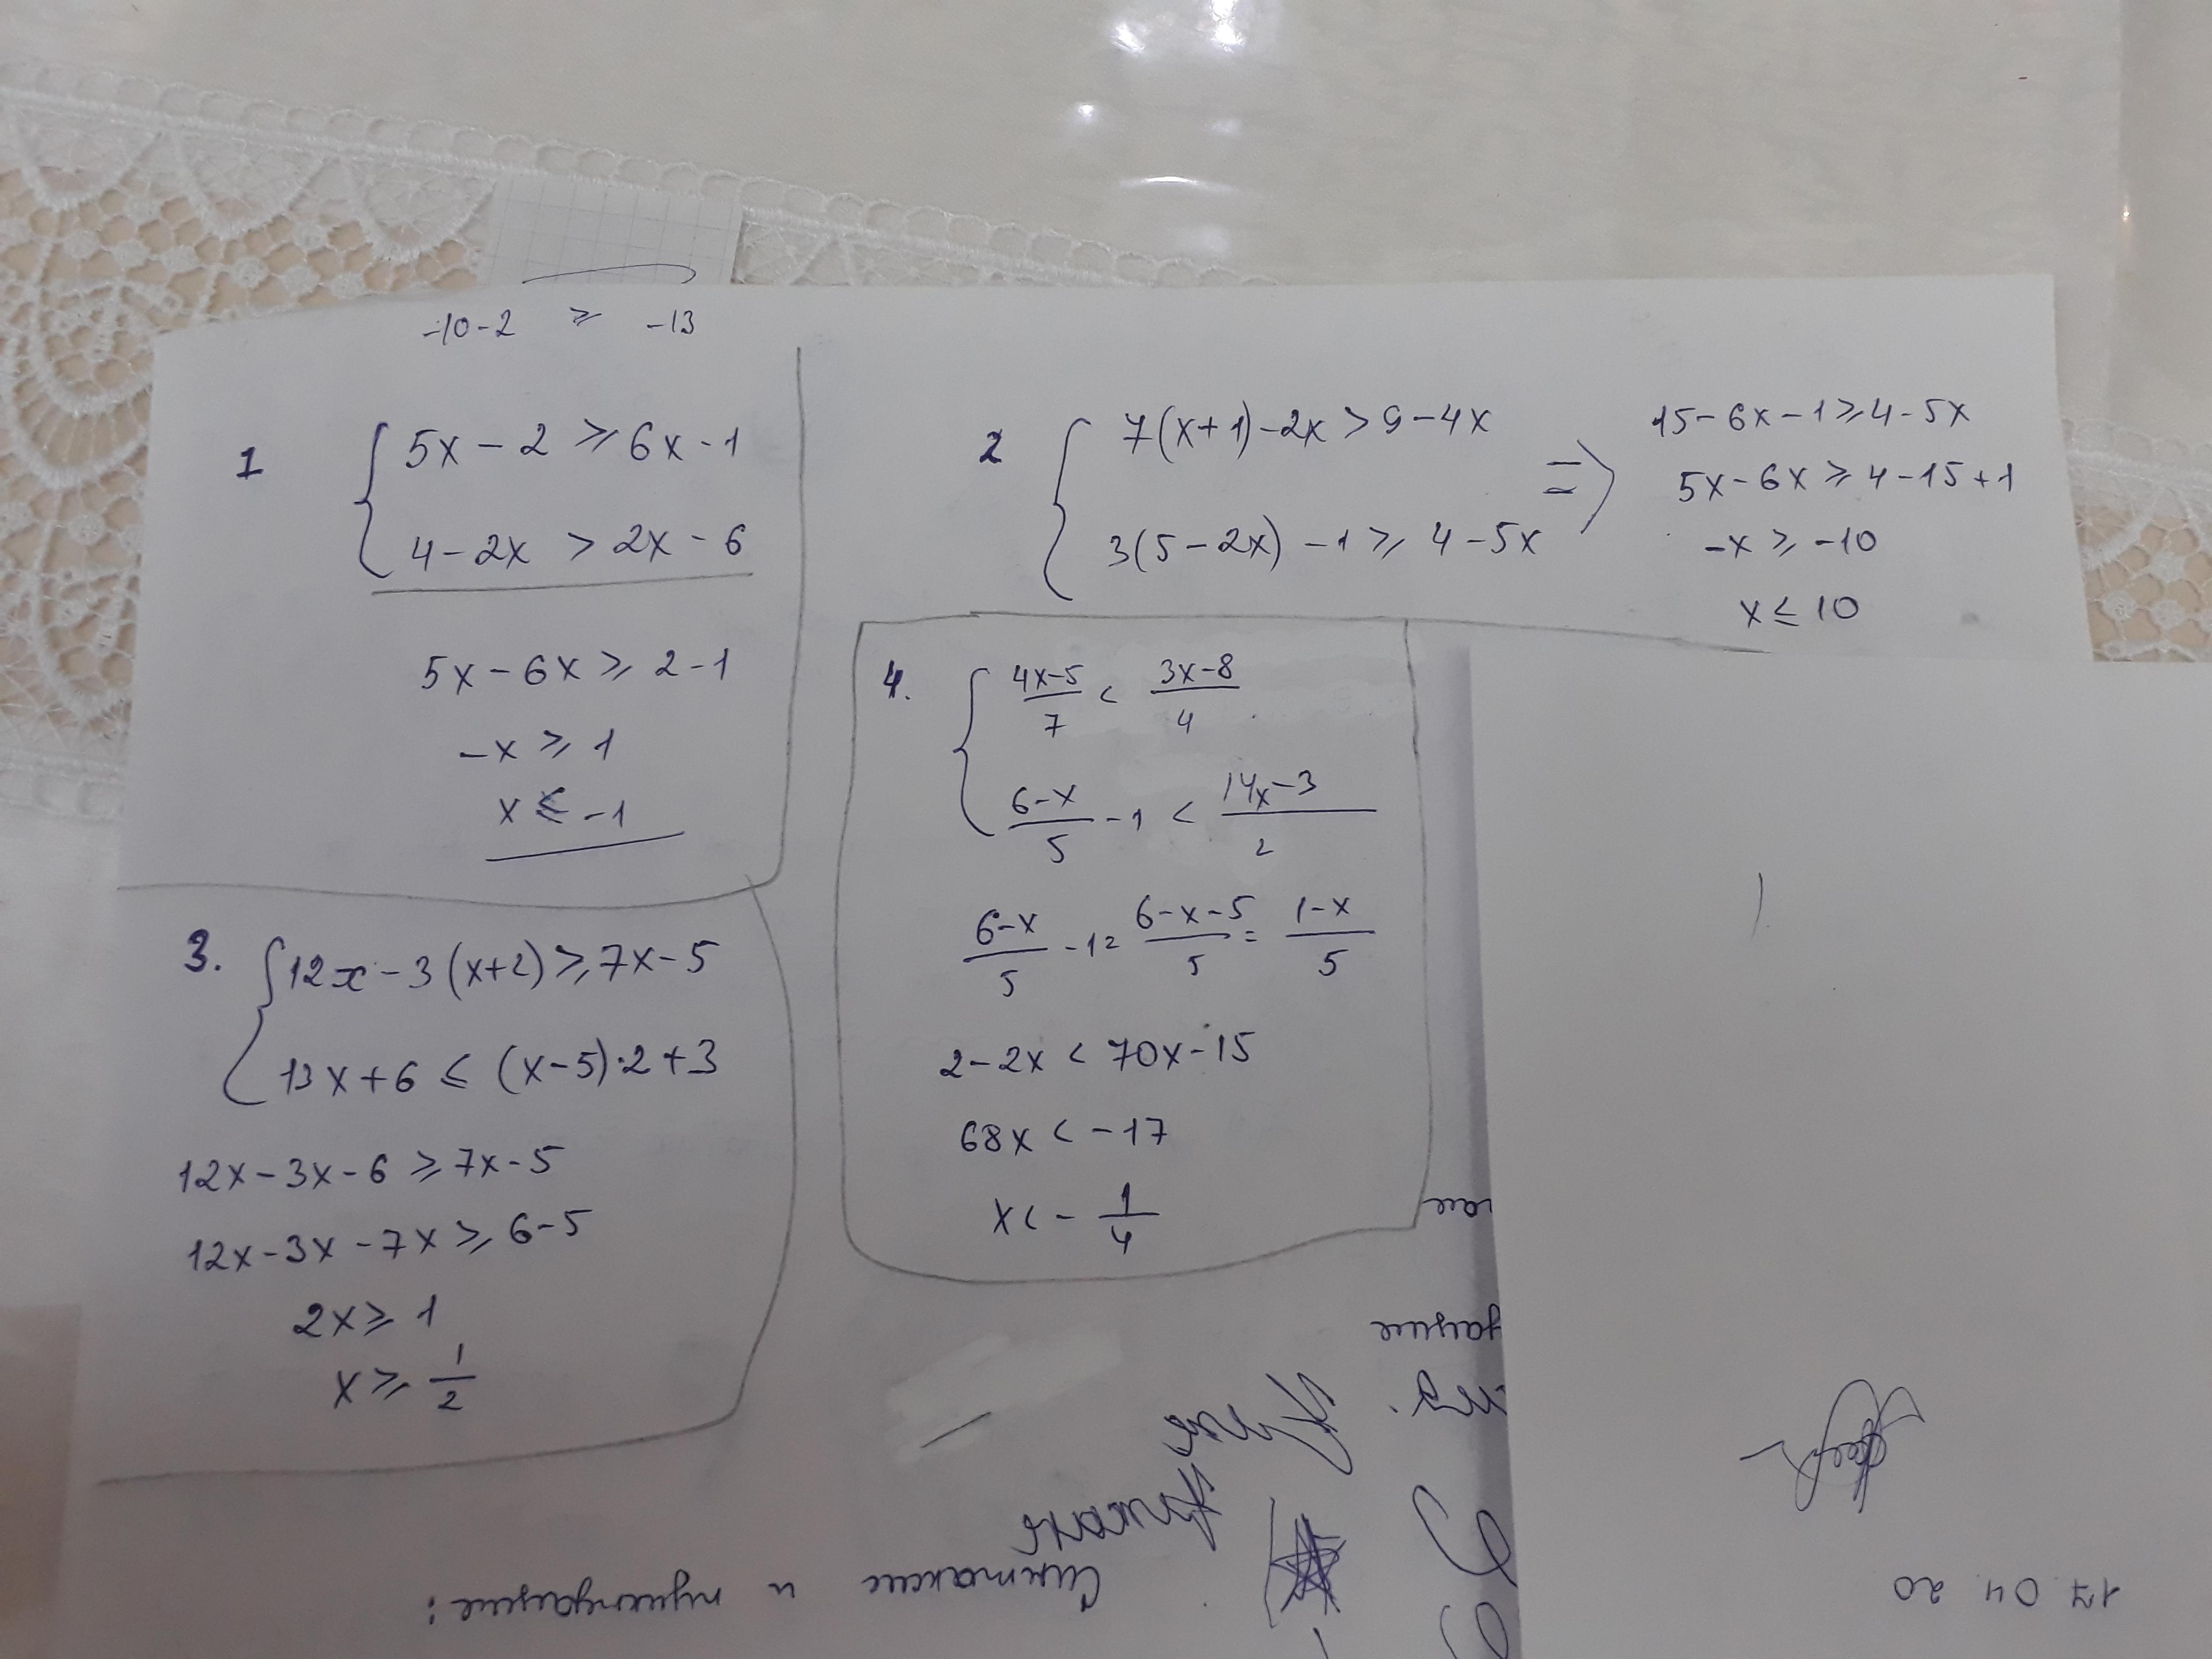 -10-2 ⩾ -13
1
5x-2 ⩾ 6x-1
4-2x > 2x-6
5x-6x ⩾ 2-1
-x ⩾ 1
x ⩽ -1
2
7(x+1)-2x > 9-4x
3(5-2x)-1 ⩾ 4-5x
=>
15-6x-1 ⩾ 4-5x
5x-6x ⩾ 4-15+1
-x ⩾ -10
x ≤ 10
3.
12x-3(x+2) ⩾ 7x-5
13x+6 ≤ (x-5)·2+3
12x-3x-6 ⩾ 7x-5
12x-3x-7x ⩾ 6-5
2x ⩾ 1
x ⩾ 1/2
4.
(4x-5)/7 < (3x-8)/4
(6-x)/5 - 1 < (14x-3)/2
(6-x)/5 - 1 = (6-x-5)/5 = (1-x)/5
2-2x < 70x-15
68x < -17
x < - 1/4
17 04 20